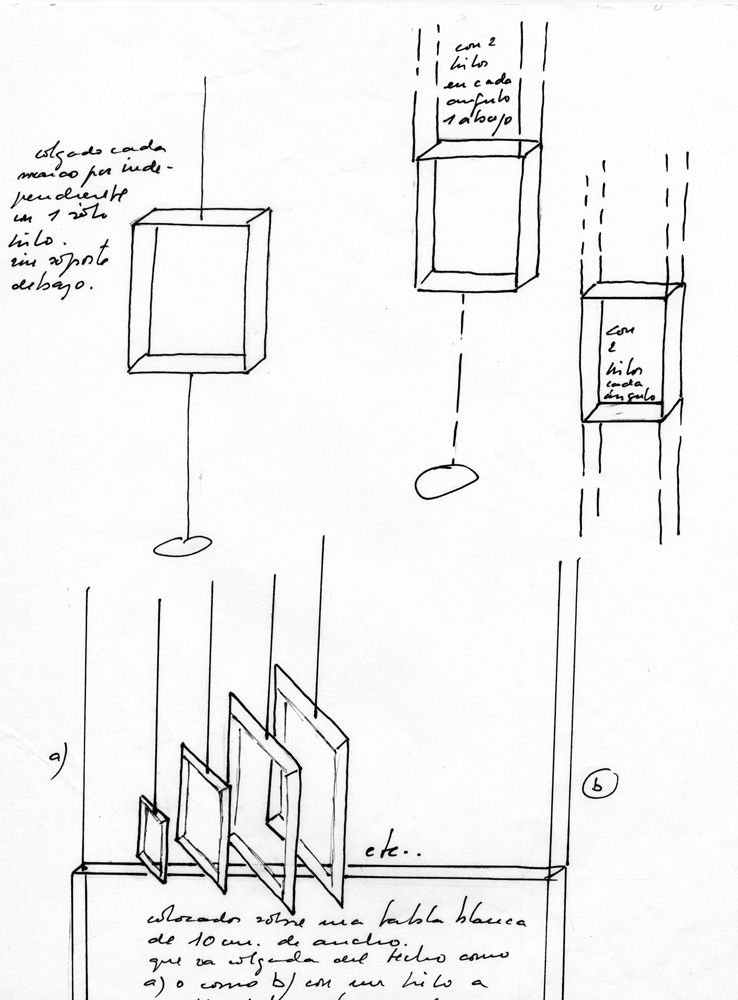 colgado cada
marco por inde-
pendiente
con 1 sólo
hilo.
sin soporte
debajo.
con 2
hilos
en cada
angulo
1 abajo
con
2
hilos
cada
ángulo
a)
b
etc..
colocados sobre una tabla blanca
de 10 cm. de ancho.
que va colgada del techo como
a) o como b) con un hilo a